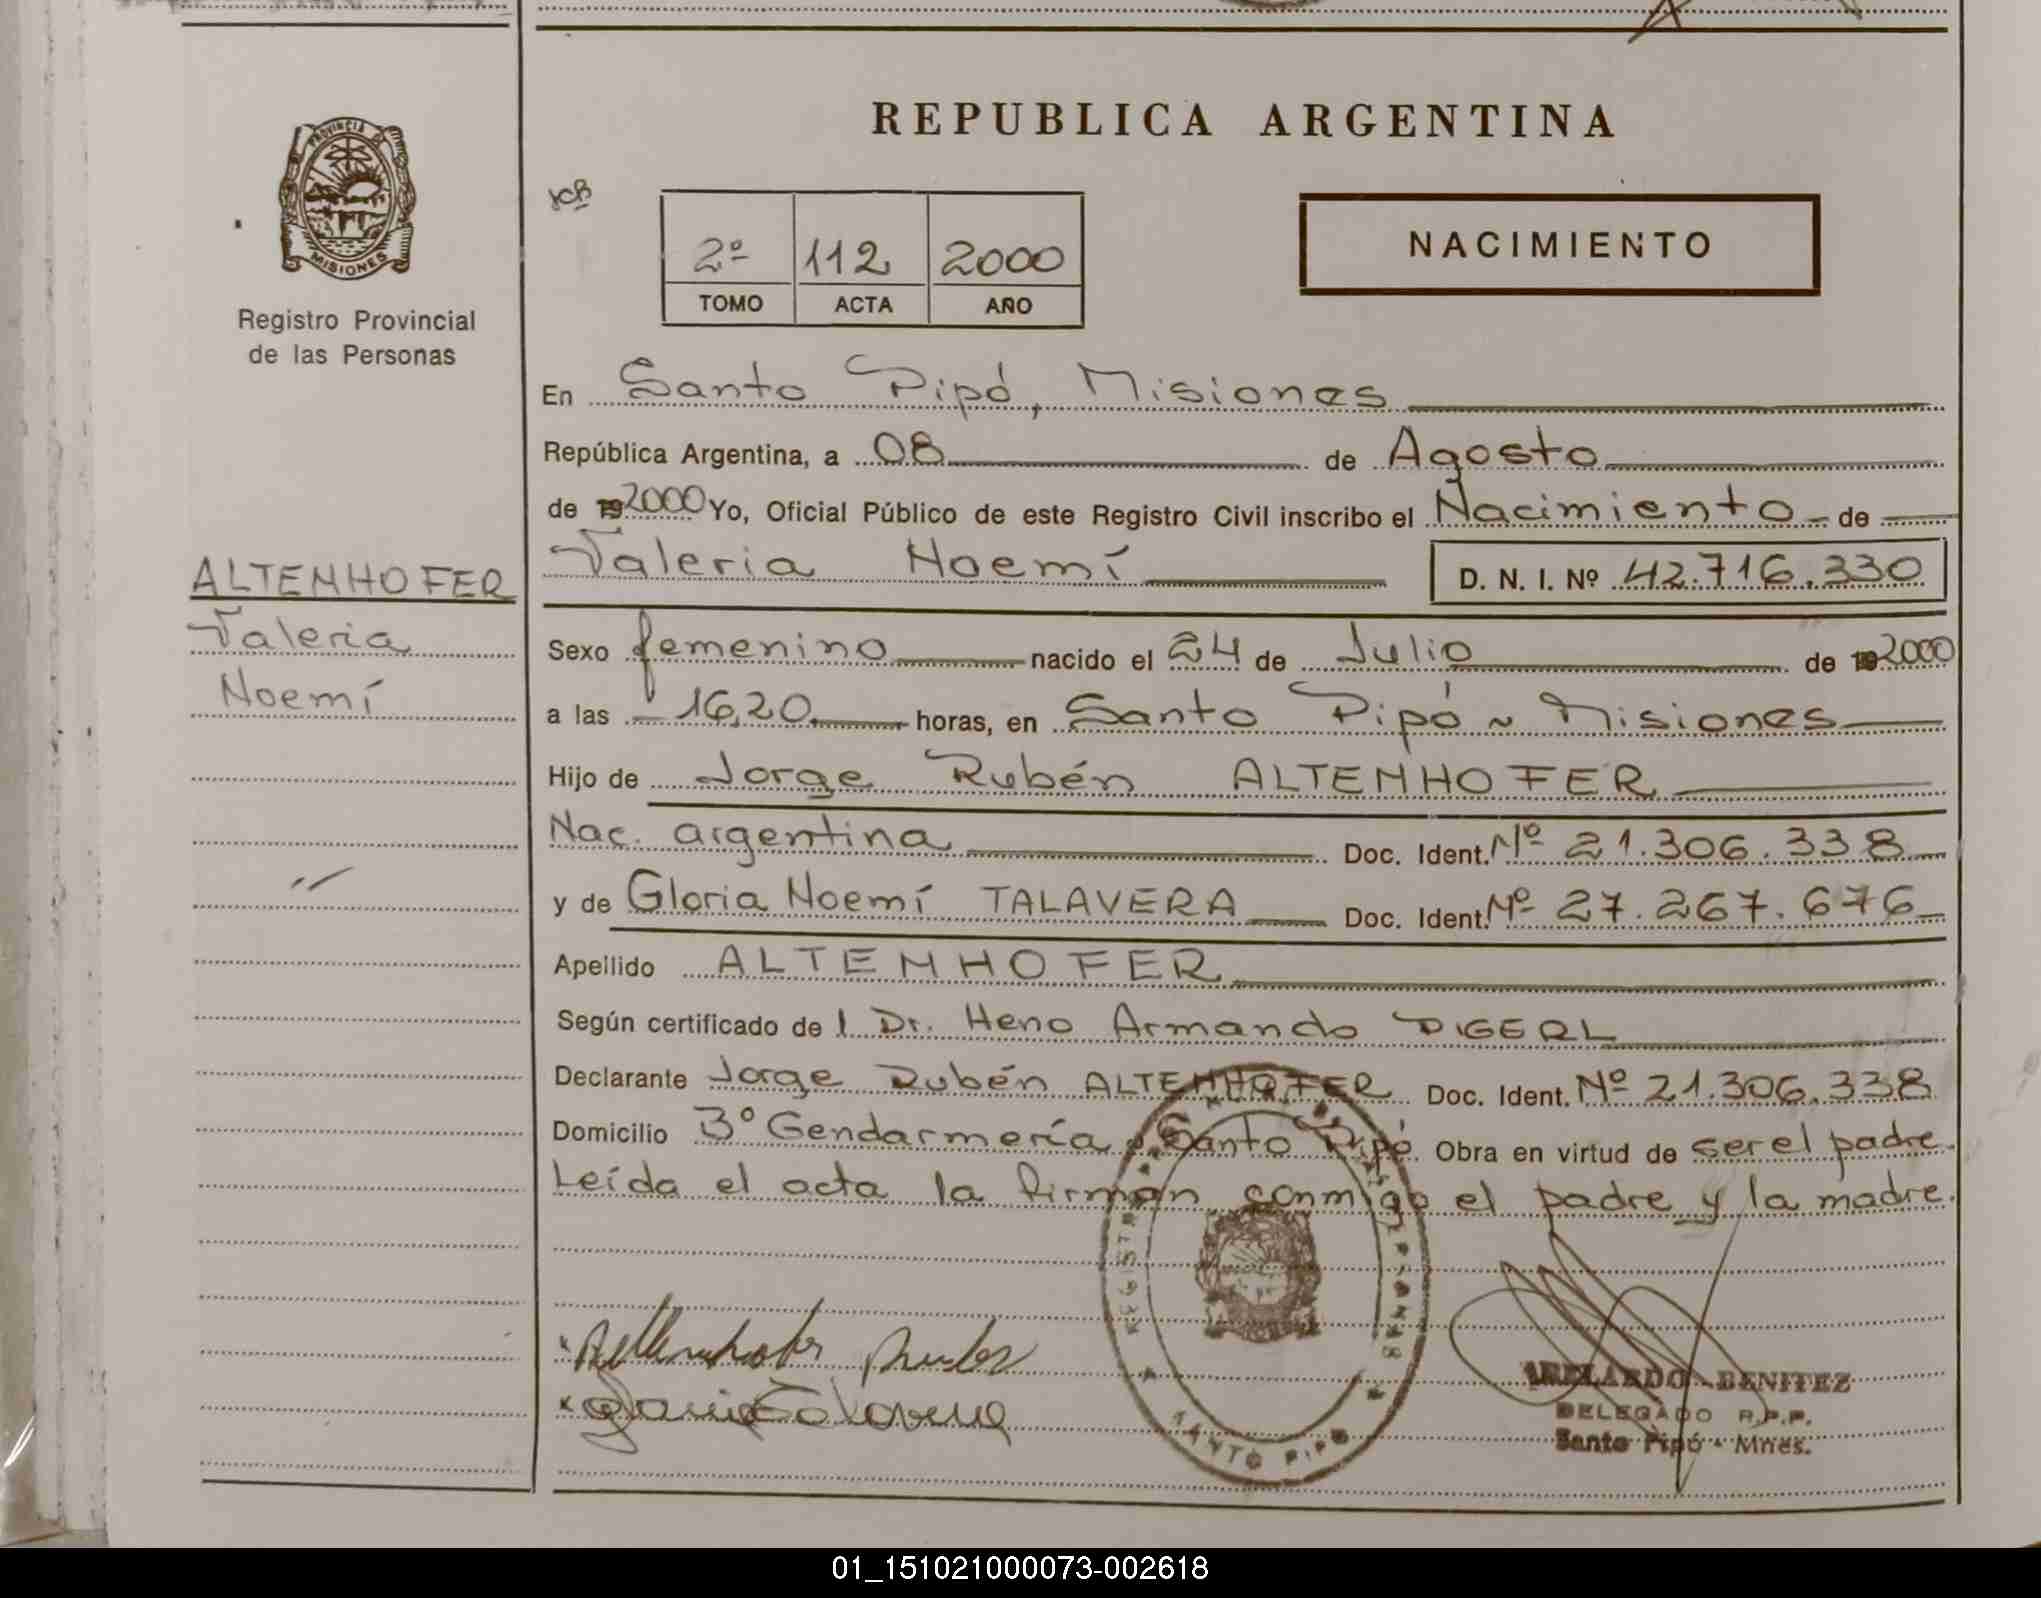 REPUBLICA ARGENTINA
PROVINCIA DE
MISIONES
Registro Provincial
de las Personas
2º 112 2000
TOMO ACTA AÑO
NACIMIENTO
En Santo Pipó, Misiones
República Argentina, a 08 de Agosto
de 192000 Yo, Oficial Público de este Registro Civil inscribo el Nacimiento de
Valeria Noemí D. N. I. Nº 42.716.330
ALTENHOFER
Valeria
Noemí
Sexo femenino nacido el 24 de Julio de 2000
a las 16,20 horas, en Santo Pipó ~ Misiones
Hijo de Jorge Rubén ALTENHOFER
Nac. argentina Doc. Ident. Nº 21.306.338
y de Gloria Noemí TALAVERA Doc. Ident. Nº 27.267.676
Apellido ALTENHOFER
Según certificado de l Dr. Heno Armando DIGERL
Declarante Jorge Rubén ALTENHOFER Doc. Ident. Nº 21.306.338
Domicilio Bº Gendarmería, Santo Pipó Obra en virtud de ser el padre.
Leída el acta la firman conmigo el padre y la madre.
SANTO PIPO
ABELARDO BENITEZ
DELEGADO R.P.P.
Santo Pipó - Mnes.
01_151021000073-002618